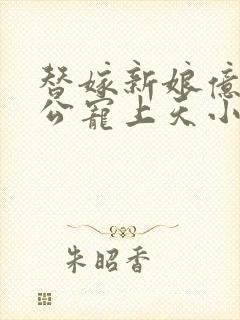 替嫁新娘億
公寵上天小
朱昭香